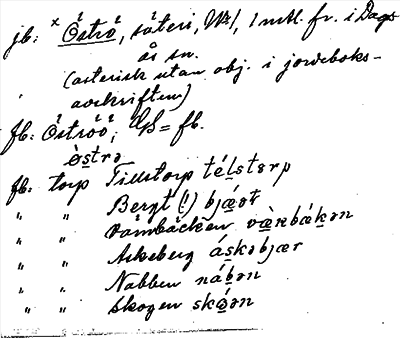 jb: × Öströ, säteri, Wb, 1 mtl. fr. i Dags
ås sn.
(asterisk utan obj. i jordeboks-
avskriften)
fb: Öströö, GS = fb.
östrə
fb. torp Tillstorp télstɔrp
" " Bergt (!) bjǽrt
" " Vämbäcken væ̀mbä́kən
" " Askeberg áskəbjær
" " Nabben nábən
" " Skogen skóən